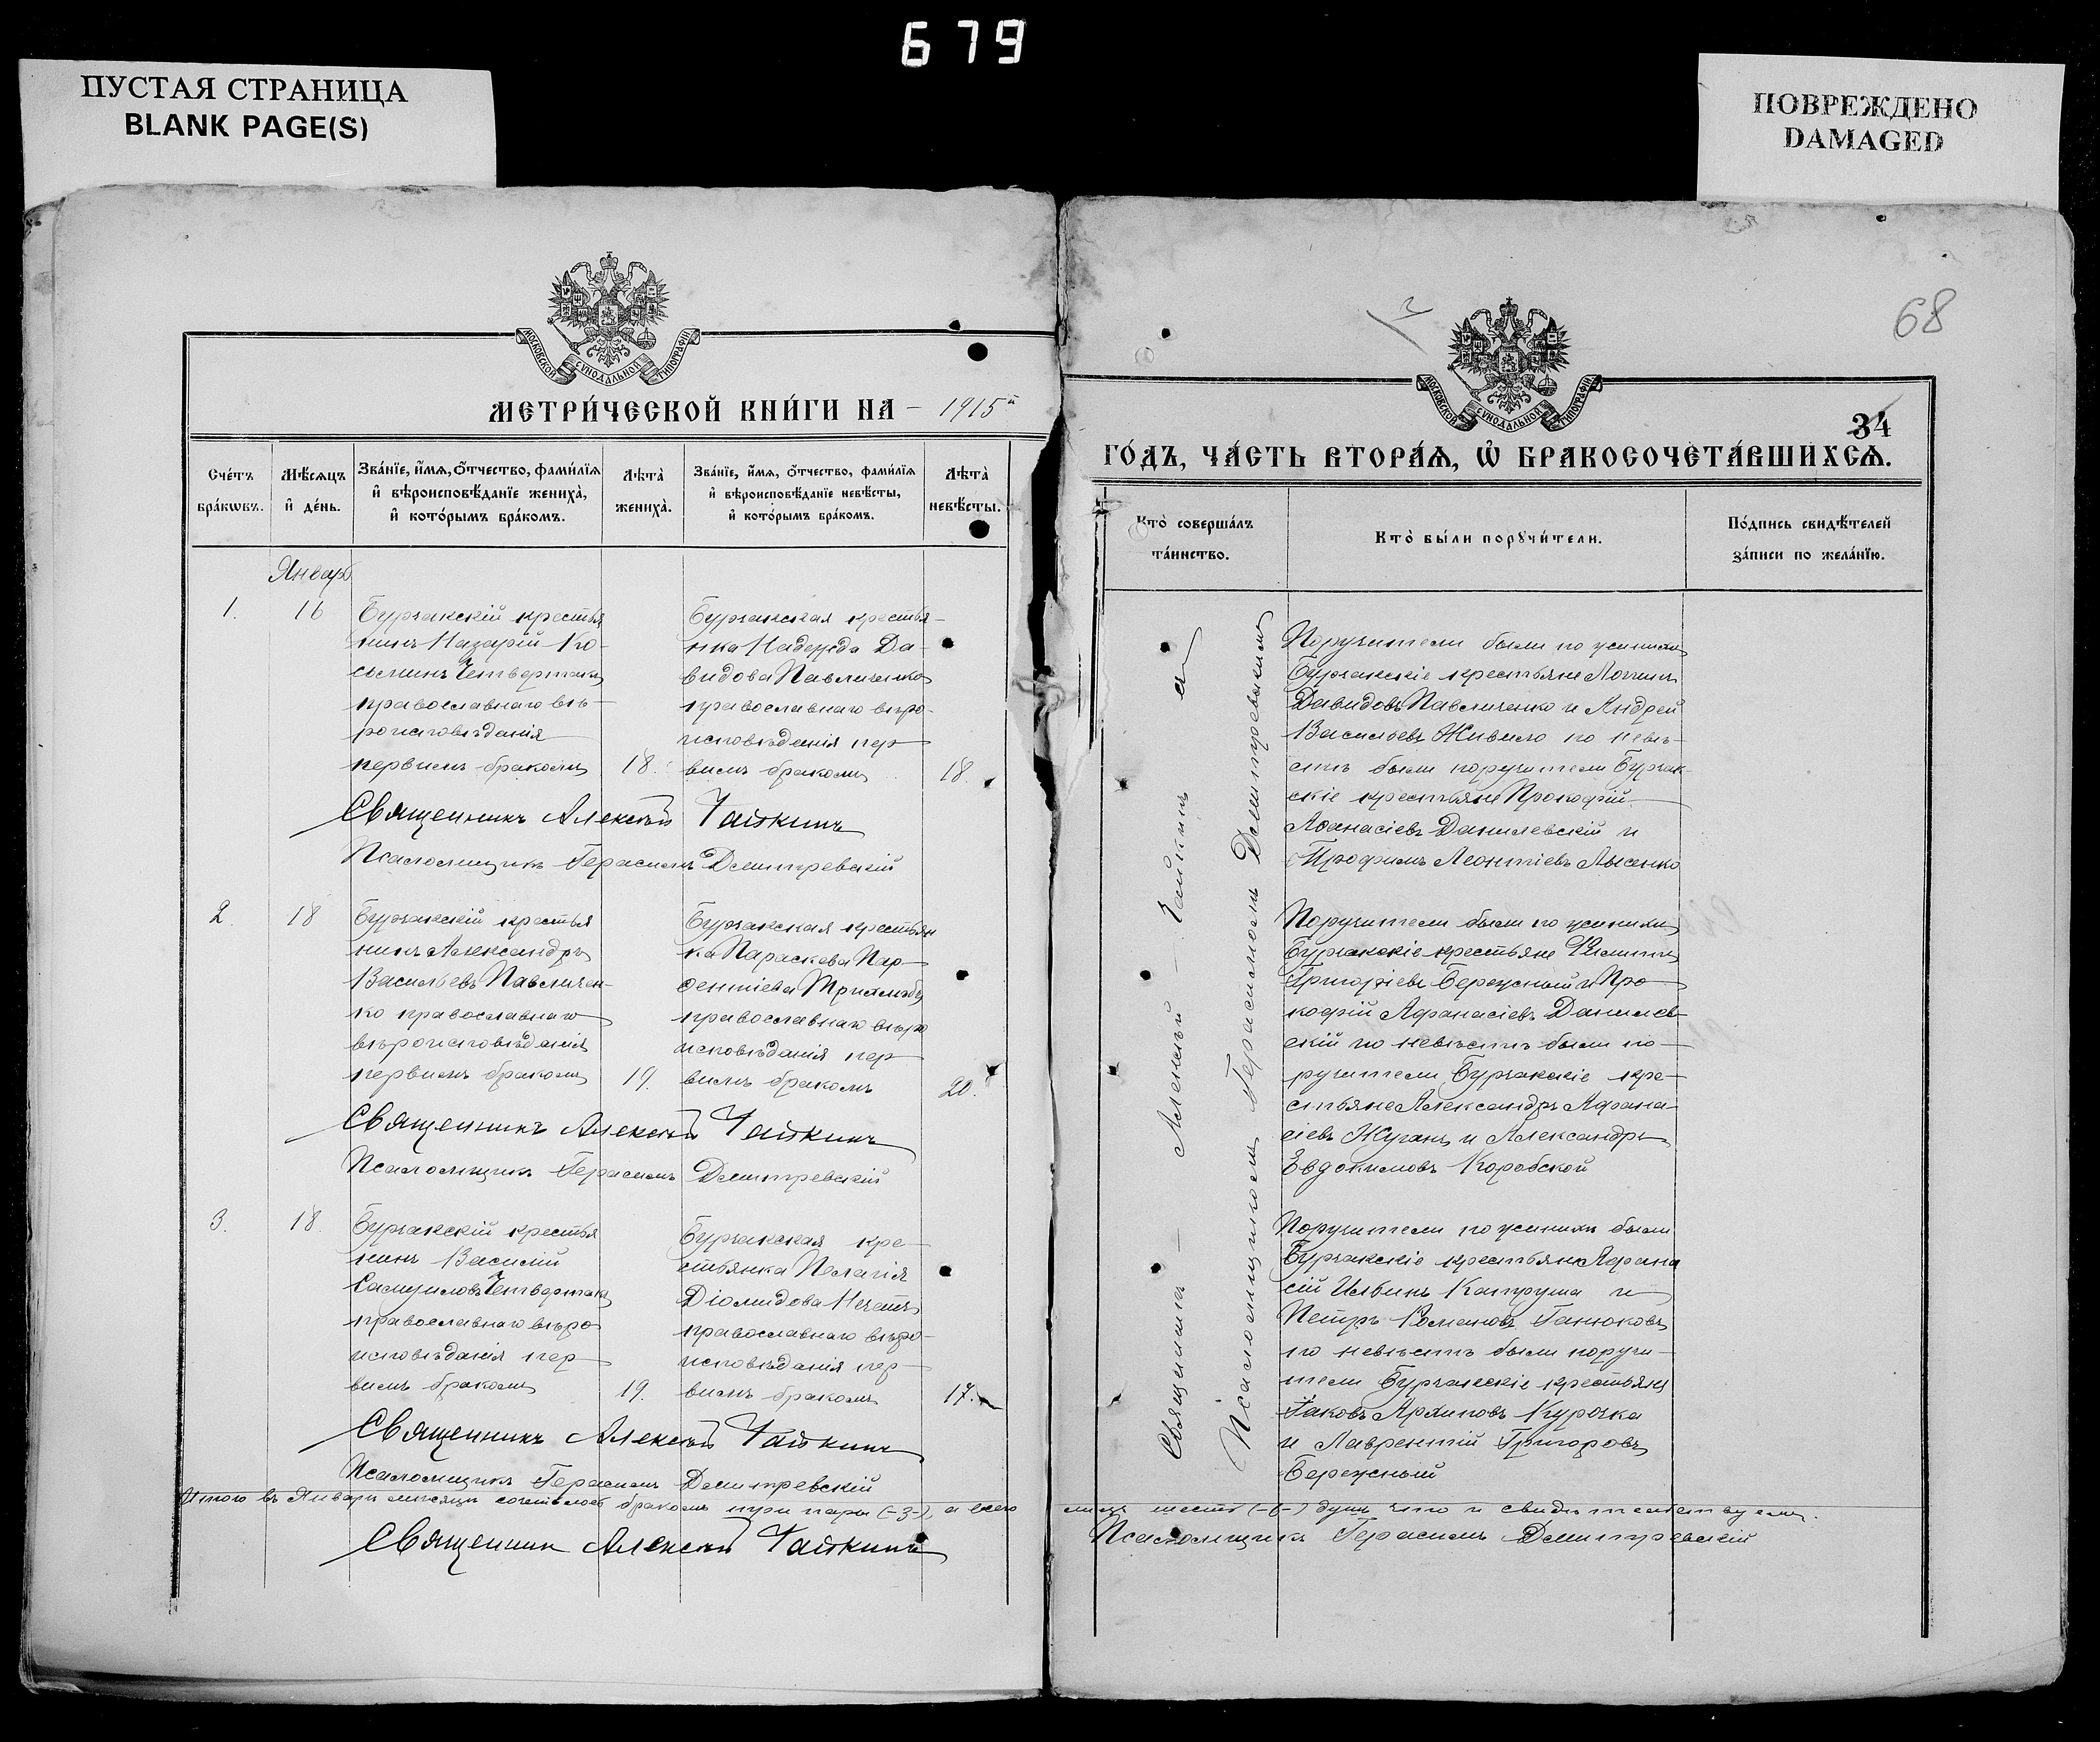 679
ПУСТАЯ СТРАНИЦА
BLANK PAGE(S)
ПОВРЕЖДЕНО
DAMAGED
68
МОСКОВСКОЙ СѴНОДАЛЬНОЙ ТИПОГРАФІИ
МЕТРИ́ЧЕСКОЙ КНИ́ГИ НА – 1915й
Сче́тъ бра́кѡвъ.
Мѣ́сѧцъ и҆ де́нь.
Зва́нїе, и҆́мѧ, ѻ҆́тчество, фами́лїѧ
и҆ вѣроисповѣ́данїе жениха̀,
и҆ кото́рымъ бра́комъ.
Лѣта̀ жениха̀.
Зва́нїе, и҆́мѧ, ѻ҆́тчество, фами́лїѧ
и҆ вѣроисповѣ́данїе невѣ́сты,
и҆ кото́рымъ бра́комъ.
Лѣта̀ невѣ́сты.
Январь
1.
16
Бурчакскій крестья
нинъ Назарій Ко-
сьминъ Четвертакъ
православнаго вѣ-
роисповѣданія
первымъ бракомъ
18.
Бурчакская крестья-
нка Надежда Да-
видова Павличенко
православнаго вѣро-
исповѣданія пер
вымъ бракомъ
18.
Священникъ Алексѣй Чайкинъ
Псаломщикъ Герасимъ Демитревскій
2.
18
Бурчакскій крестья
нинъ Александръ
Васильевъ Павличен-
ко православнаго
вѣроисповѣданія
первымъ бракомъ
19.
Бурчакская крестьян
ка Параскева Пар
православнаго вѣро
исповѣданія пер
вымъ бракомъ
20.
Священникъ Алексѣй Чайкинъ
Псаломщикъ Герасимъ Демитревскій
3.
18.
Бурчакскій крестья
нинъ Василій
Самуиловъ Четвертакъ
православнаго вѣро
исповѣданія пер
вымъ бракомъ
19.
Бурчакская кре-
стьянка Пелагія
Діомидова
православнаго вѣро-
исповѣданія пер-
вымъ бракомъ
17.
Священникъ Алексѣй Чайкинъ
Псаломщикъ Герасимъ Демитревскій
Итого въ Январѣ мѣсяцѣ сочеталось бракомъ три пары (-3-), а всего
Священник Алексѣй Чайкинъ
МОСКОВСКОЙ СѴНОДАЛЬНОЙ ТИПОГРАФІИ
34
ГО́ДЪ, ЧА́СТЬ ВТОРА́Ѧ, Ѡ҆ БРАКОСОЧЕТА́ВШИХСѦ.
Кто̀ соверша́лъ
та́инство.
Кто̀ бы́ли порꙋчи́тели.
По́дпись свидѣ́телей
за́писи по жела́нїю.
Священник — Алексѣй — Чайкинъ а
Псаломщикомъ Герасимомъ Демитревскимъ
Поручители были по женихѣ
Бурчакскіе крестьяне
Давидовъ Павличенко и Андрей
Васильевъ Живило по невѣ-
стѣ были поручители Бурчак-
скіе крестьяне Прокофій
Аѳанасіевъ Данилевскій и
Трофимъ Леонтіевъ Лысенко
Поручители были по женихѣ
Бурчакскіе крестьяне Филиппъ
Григоріевъ Бережный и Про
кофій Афанасіевъ Данилев-
скій по невѣстѣ были по-
ручители Бурчакскіе кре-
стьяне Александръ Афана-
сіевъ Жуганъ и Александръ
Евдокимовъ Коробской
Поручители по женихѣ были
Бурчакскіе крестьяне Афана
сій Ильинъ Капруша и
Петръ Романовъ Ганюковъ
по невѣстѣ были поручи-
тели Бурчакскіе крестьяне
Іаковъ Архиповъ Курочка
и Лаврентій Григоровъ
Бережный
лицъ шесть (-6-) душъ что и свидѣтельствуемъ.
Псаломщикъ Герасимъ Демитревскій